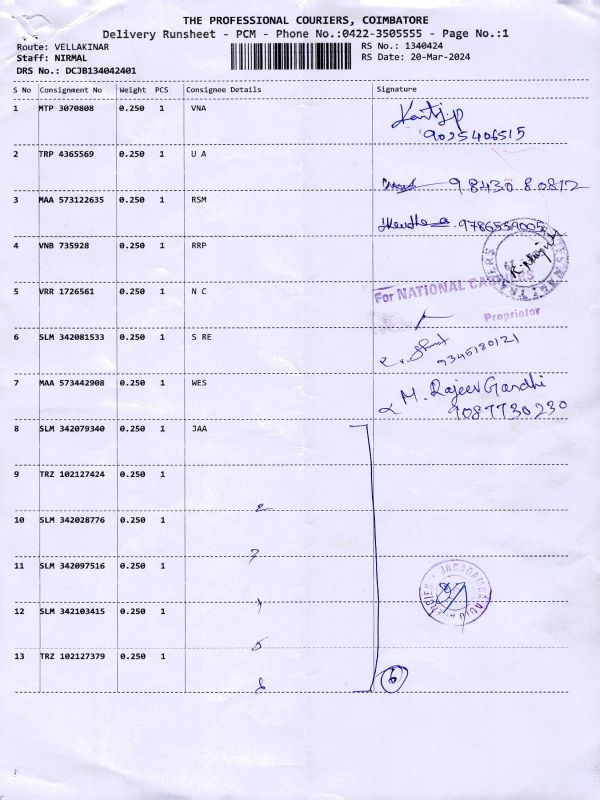 THE PROFESSIONAL COURIERS, COIMBATORE
Delivery Runsheet - PCM - Phone No.:0422-3505555 - Page No.:1
Route: VELLAKINAR RS No.: 1340424
Staff: NIRMAL RS Date: 20-Mar-2024
DRS No.: DCJB134042401
S No Consignment No Weight PCS Consignee Details Signature
1 MTP 3070808 0.250 1 VNA
9025406515
2 TRP 4365569 0.250 1 U A
9843080812
3 MAA 573122635 0.250 1 RSM
9786559005
4 VNB 735928 0.250 1 RRP
5 VRR 1726561 0.250 1 N C
For NATIONAL CARRIERS
Proprietor
6 SLM 342081533 0.250 1 S RE
9345180121
7 MAA 573442908 0.250 1 WES
M. Rajeev Gandhi
9087730230
8 SLM 342079340 0.250 1 JAA
9 TRZ 102127424 0.250 1
2
10 SLM 342028776 0.250 1
3
11 SLM 342097516 0.250 1
4
12 SLM 342103415 0.250 1
5
13 TRZ 102127379 0.250 1
6 6